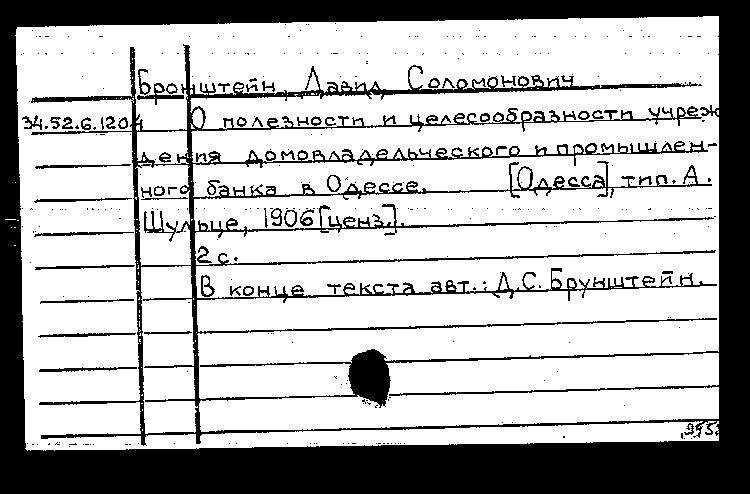 Бронштейн, Давид Соломонович
34.52.6.1204 О полезности и целесообразности учреж
дения домовладельческого и промышлен-
ного банка в Одессе. [Одесса], тип. А.
Шульце, 1906 [ценз.].
2 с.
В конце текста авт.: Д.С. Брунштейн.